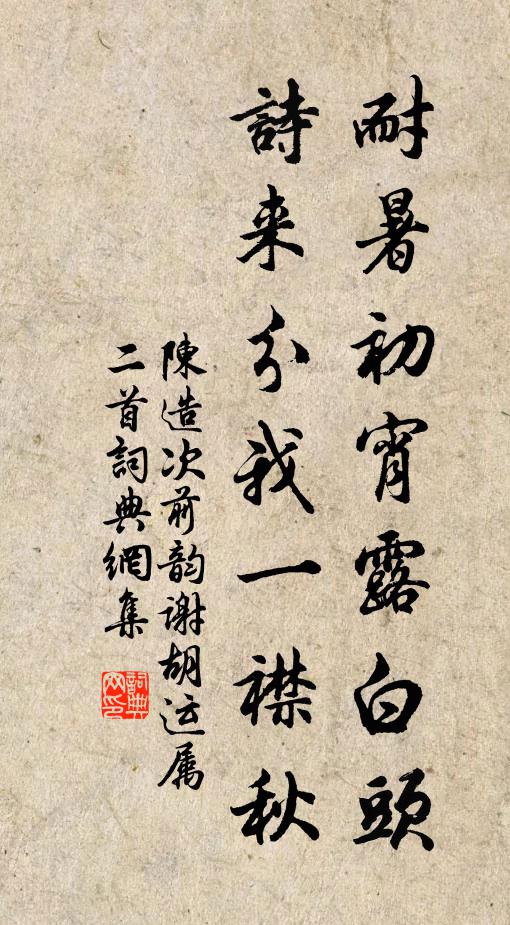 耐暑初宵露白頭
詩来分我一襟秋
陳造次前韵谢胡运属
二首詞典網集
詞典网印